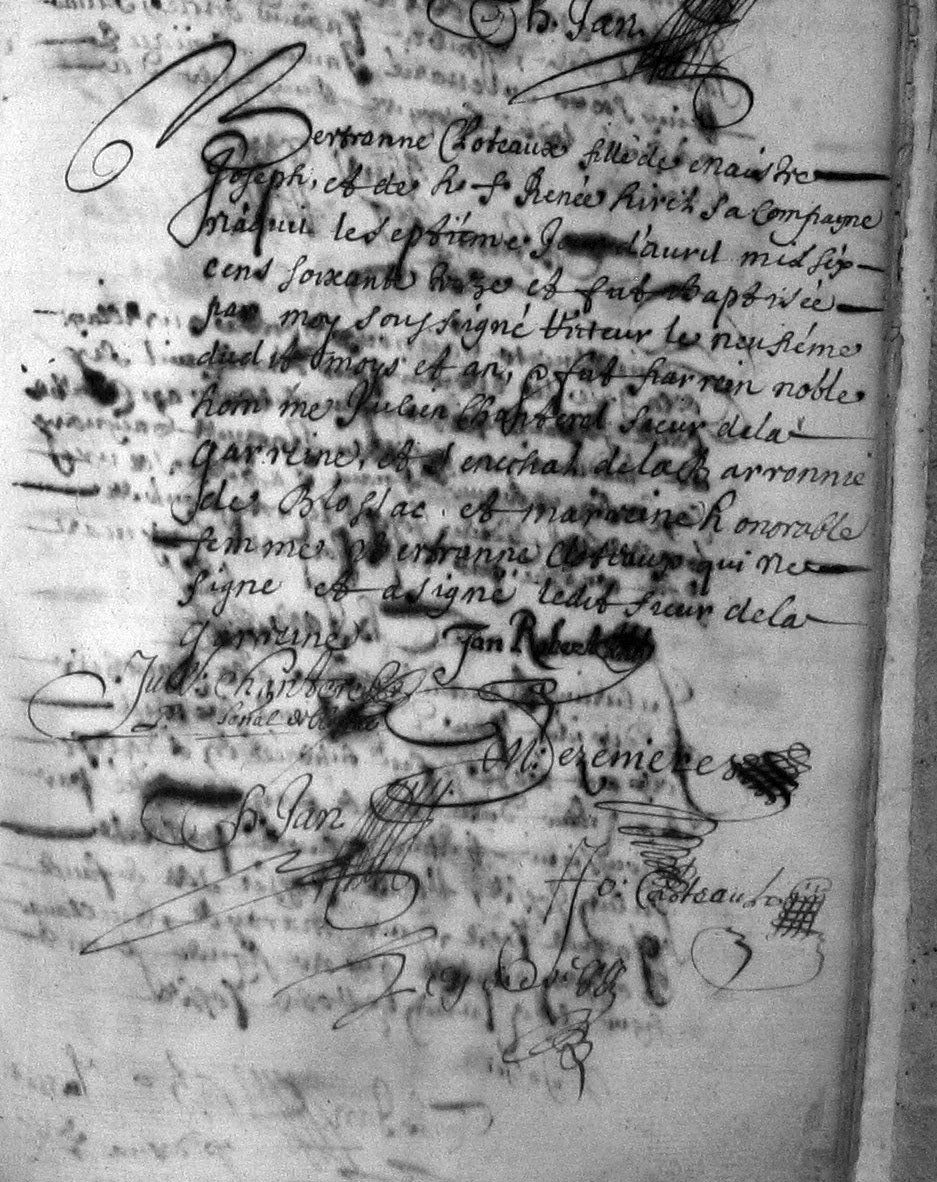 h. Jan.
Bertranne Choteaux fille de maistre
Joseph, et de h. f. Renée sa compagne
nâquit le septiéme d'auril mil six
cens soixante treze et fut baptisée
par moy soussigné le neufiéme
dudit moys et an, fut parrein noble
homme Julien Chanterel sieur de la
Garreine, et senechal de la Barronnie
de Blossac. et marreine honorable
femme Bertranne qui ne
signe et a signé ledit sieur de la
Garreine
Jan Robert
Jull: Chanterel
M: Dezemeres
h. Jan
Jo: Choteaux